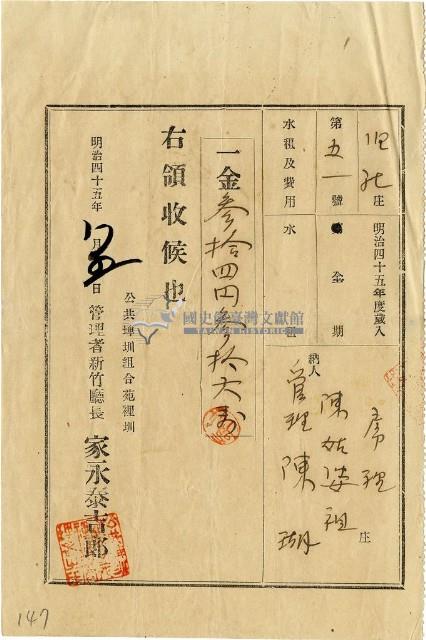 明治四十五年度歲入
庄
第五一號
全期
水租及費用
水租
納人
庄
陳姑婆祖
管理 陳瑚
一金參拾四円參拾六錢
右領收候也
明治四十五年 月 日
公共埤圳組合苑裡圳
管理者新竹廳長 家永泰吉郎
國史館臺灣文獻館
TAIWAN HISTORICA
147